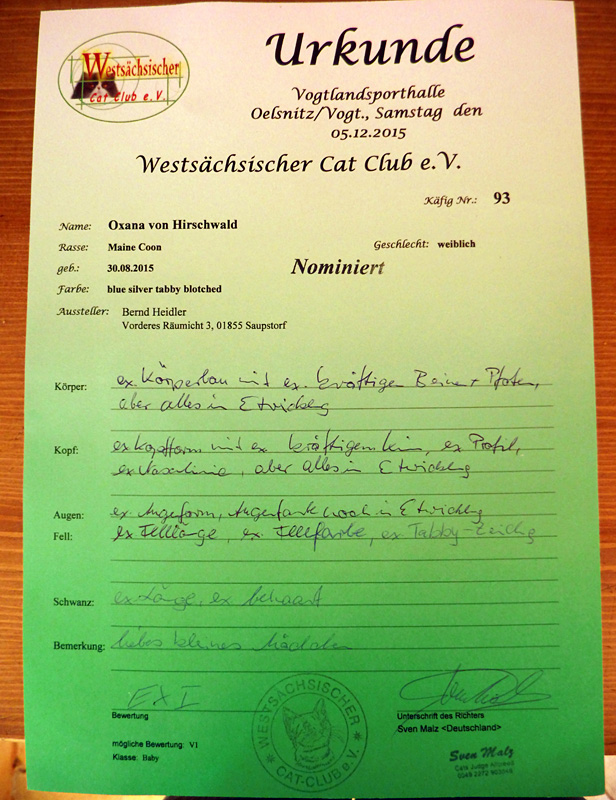 Westsächsischer
Cat Club e.V.
Urkunde
Vogtlandsporthalle
Oelsnitz/Vogt., Samstag den
05.12.2015
Westsächsischer Cat Club e.V.
Käfig Nr.: 93
Name: Oxana von Hirschwald
Rasse: Maine Coon
Geschlecht: weiblich
geb.: 30.08.2015
Nominiert
Farbe: blue silver tabby blotched
Aussteller: Bernd Heidler
Vorderes Räumicht 3, 01855 Saupstorf
Körper: ex. Körperbau mit ex. kräftigen Beine + Pfoten,
aber alles in Entwicklung
Kopf: ex Kopfform mit ex kräftigem Kinn, ex Profil,
ex Nasenlinie, aber alles in Entwicklung
Augen: ex Augenform, Augenfarbe noch in Entwicklung
Fell: ex Felllänge, ex. Fellfarbe, ex Tabby-Zeichng
Schwanz: ex Länge, ex behaart
Bemerkung: liebes kleines Mädchen
EX I
Bewertung
Unterschrift des Richters
Sven Malz <Deutschland>
mögliche Bewertung: VI
Klasse: Baby
WESTSÄCHSISCHER
CAT-CLUB e.V.
Sven Malz
Cats Judge